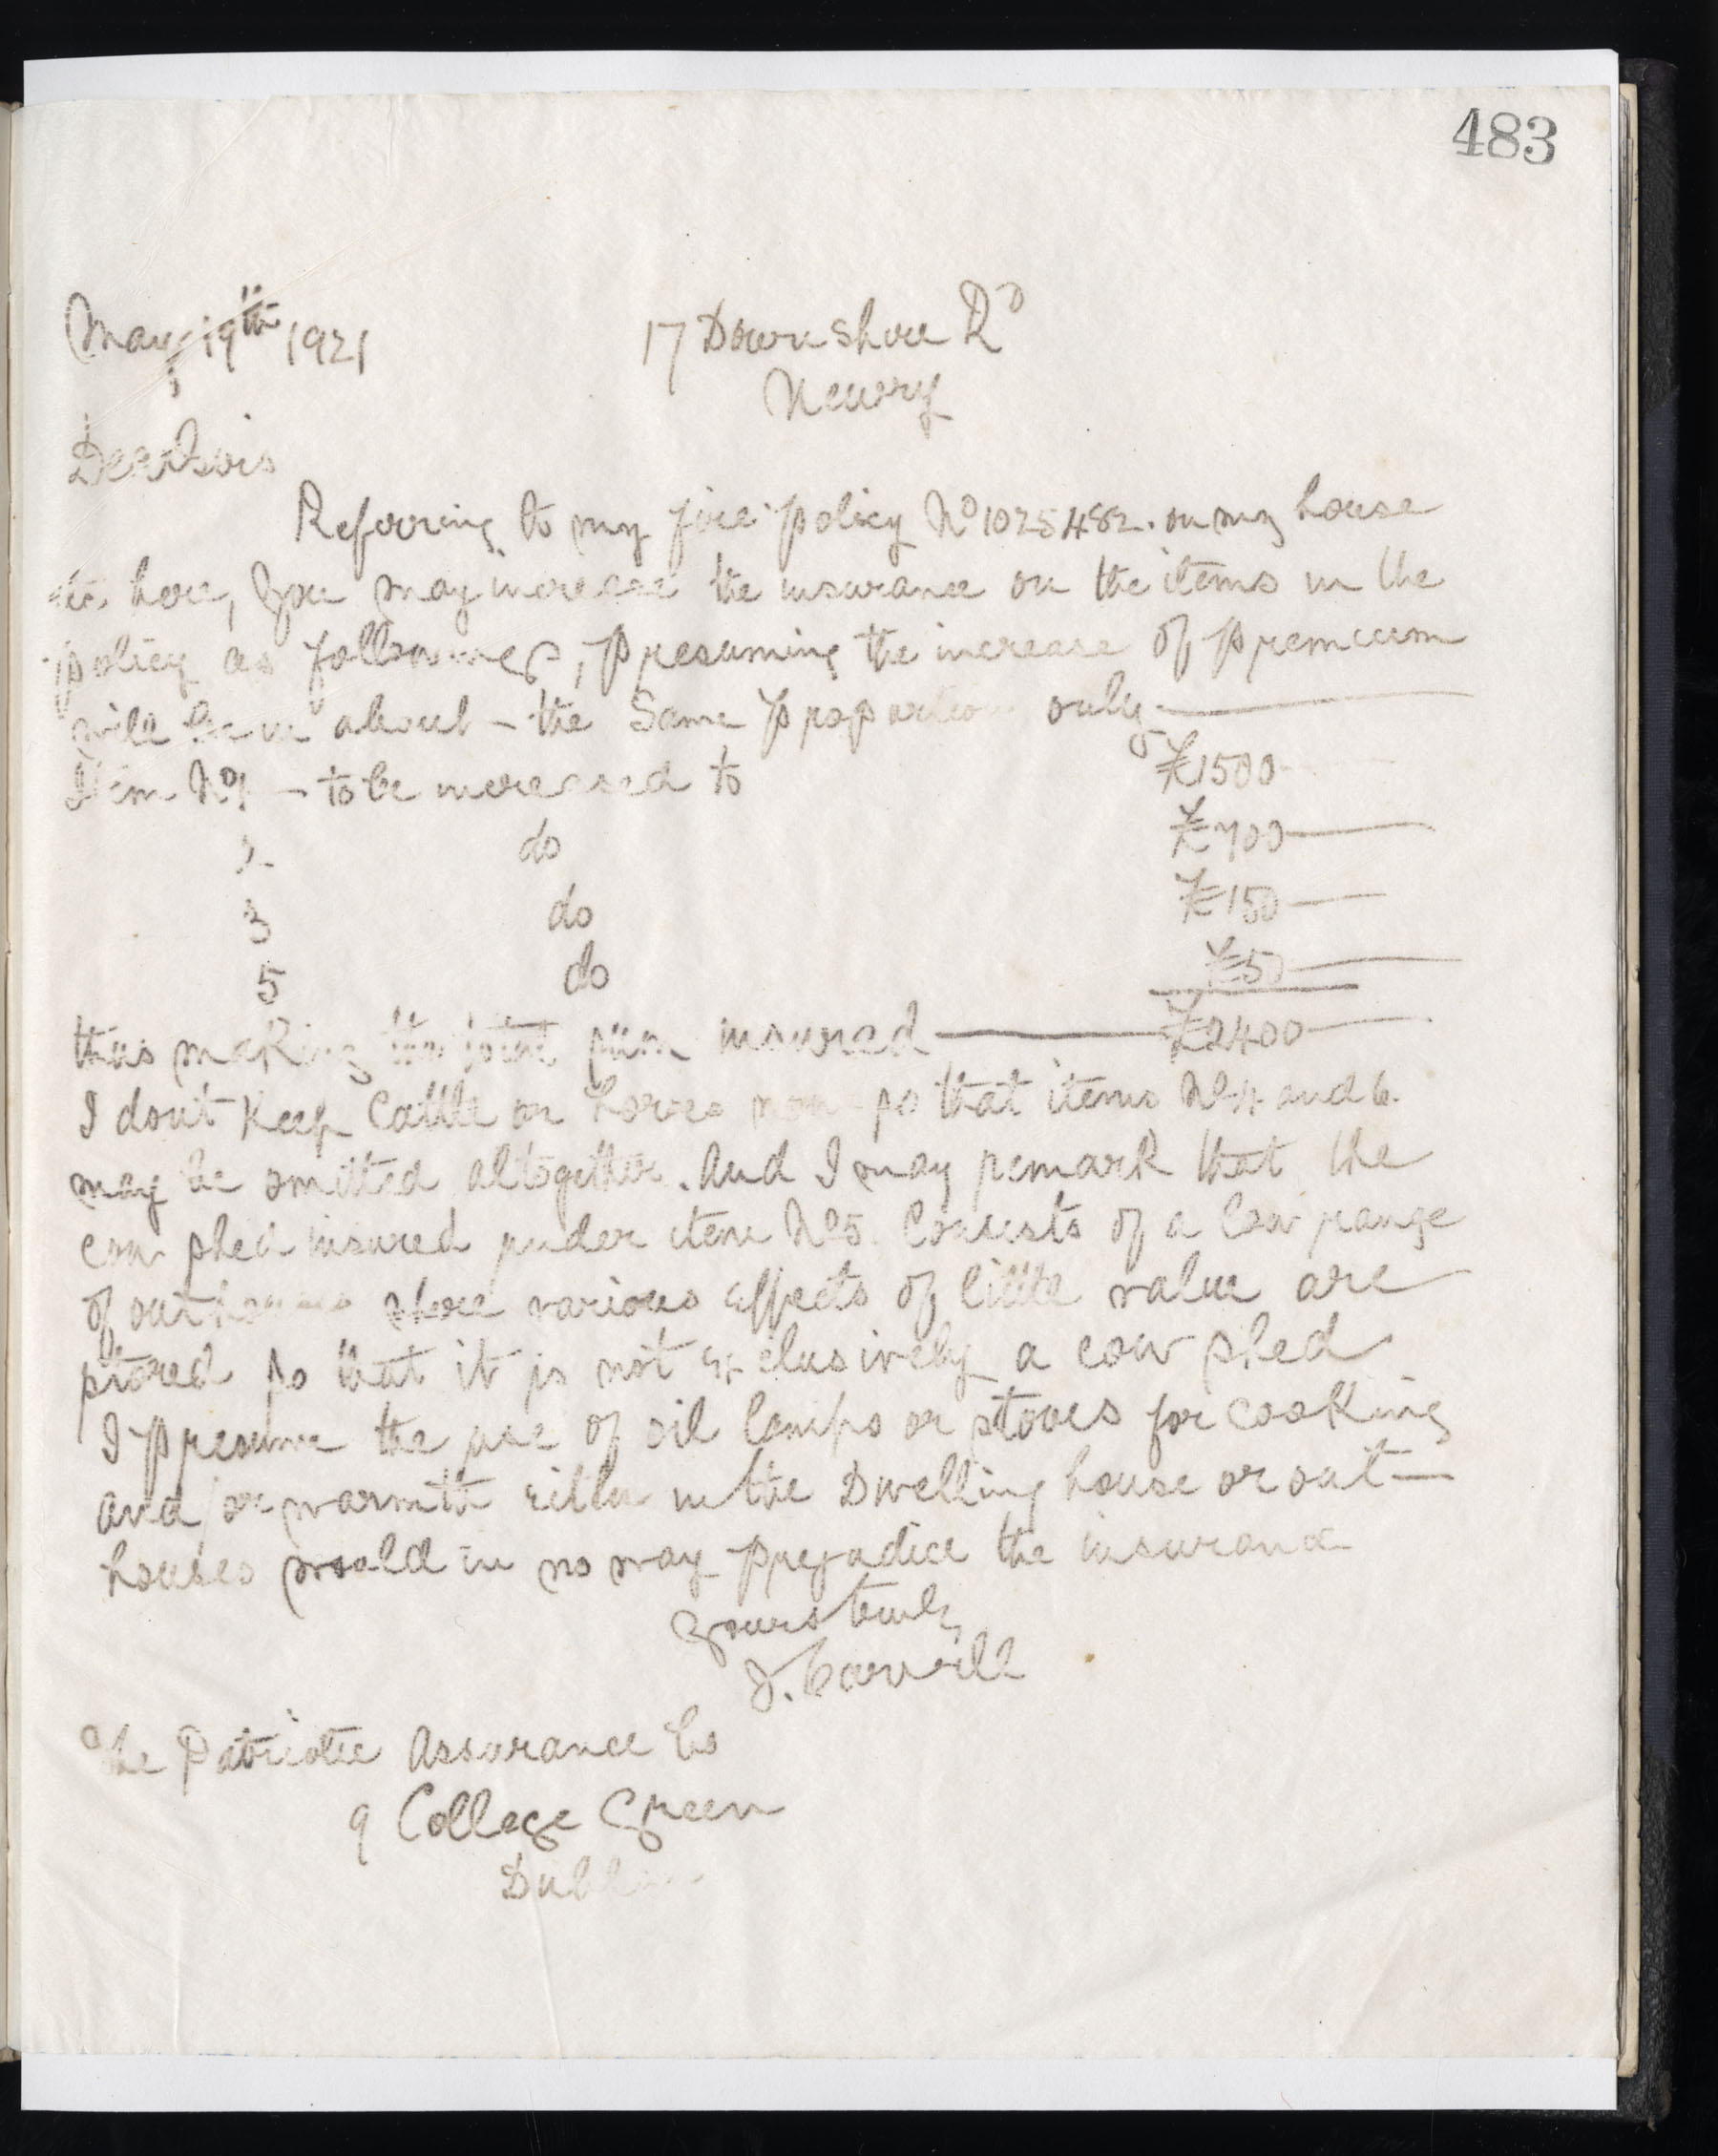 483
May 19th 1921
17 Downshire Rd
Newry
Dear Sirs
Referring to my fire policy No 1025482. on my house
here, you may increase the insurance on the items in the
policy as follows, presuming the increase of premium
will be in about - the Same proportion only
Item No 1 - to be increased to £1500
2 do £700
3 do £150
5 do £50
thus making the total sum insured £2400
I dont Keep Cattle or horses now so that items No 4 and 6.
may be omitted altogether. And I may remark that the
cow shed insured under item No 5. Consists of a low range
of outhouses where various effects of little value are
stored so that it is not exclusively a cow shed
I presume the use of oil lamps or stoves for cooking
and/or warmth either in the Dwelling house or out-
houses would in no way prejudice the insurance
Yours truly
J. Carvill
The Patriotic Assurance Co
9 College Green
Dublin